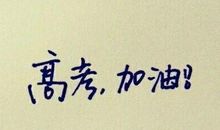 高考，加油！！